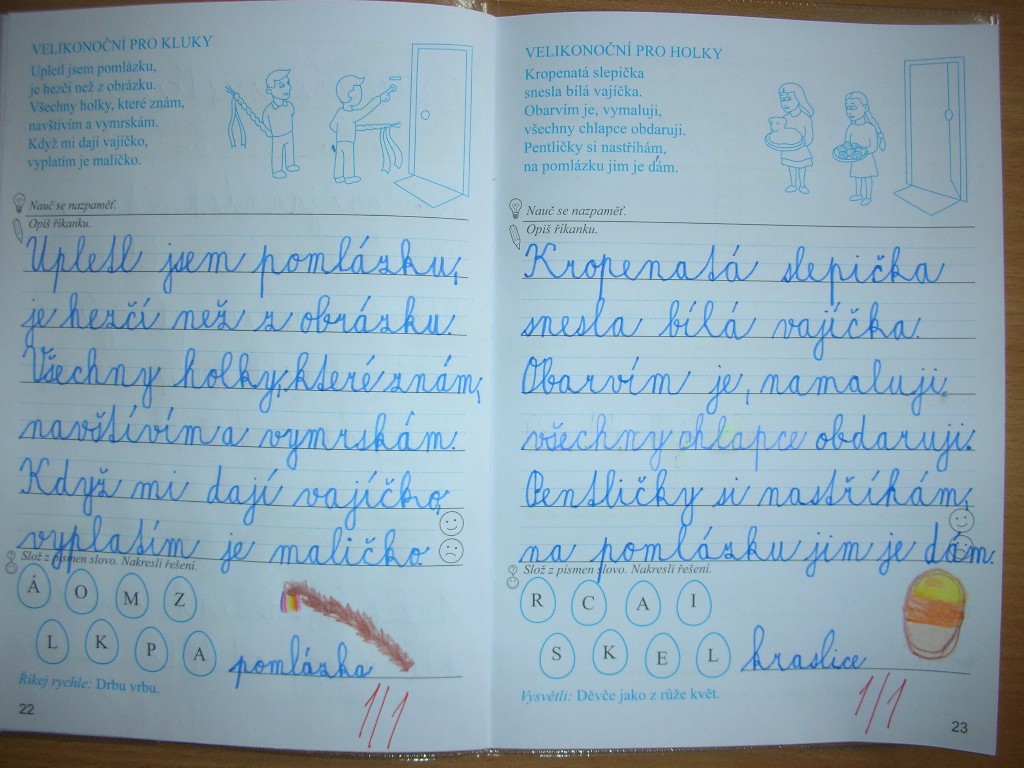 VELIKONOČNÍ PRO KLUKY
Upletl jsem pomlázku,
je hezčí než z obrázku.
Všechny holky, které znám,
navštívím a vymrskám.
Když mi dají vajíčko,
vyplatím je maličko.
Nauč se nazpaměť.
Opiš říkanku.
Upletl jsem pomlázku,
je hezčí než z obrázku.
Všechny holky, které znám,
navštívím a vymrskám.
Když mi dají vajíčko,
vyplatím je maličko.
Slož z písmen slovo. Nakresli řešení.
Á O M Z
L K P A
pomlázka
Říkej rychle: Drbu vrbu.
1/1
22
VELIKONOČNÍ PRO HOLKY
Kropenatá slepička
snesla bílá vajíčka.
Obarvím je, vymaluji,
všechny chlapce obdaruji.
Pentličky si nastříhám,
na pomlázku jim je dám.
Nauč se nazpaměť.
Opiš říkanku.
Kropenatá slepička
snesla bílá vajíčka.
Obarvím je, namaluji.
všechny chlapce obdaruji.
Pentličky si nastříkám,
na pomlázku jim je dám.
Slož z písmen slovo. Nakresli řešení.
R C A I
S K E L
kraslice
Vysvětli: Děvče jako z růže květ.
1/1
23